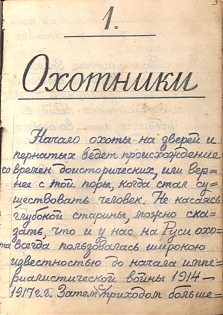 1.
Охотники
Начало охоты на дверей и
пернатых ведет происхождение
со времен доисторических, или вер-
нее с той поры, когда стал су-
ществовать человек. Не касаясь
глубокой старины, можно ска-
зать, что и у нас на Руси охо-
та всегда пользовалась широкою
известностью до начала импе-
риалистической войны 1914-
1917 г.г. Затем приходом больше-